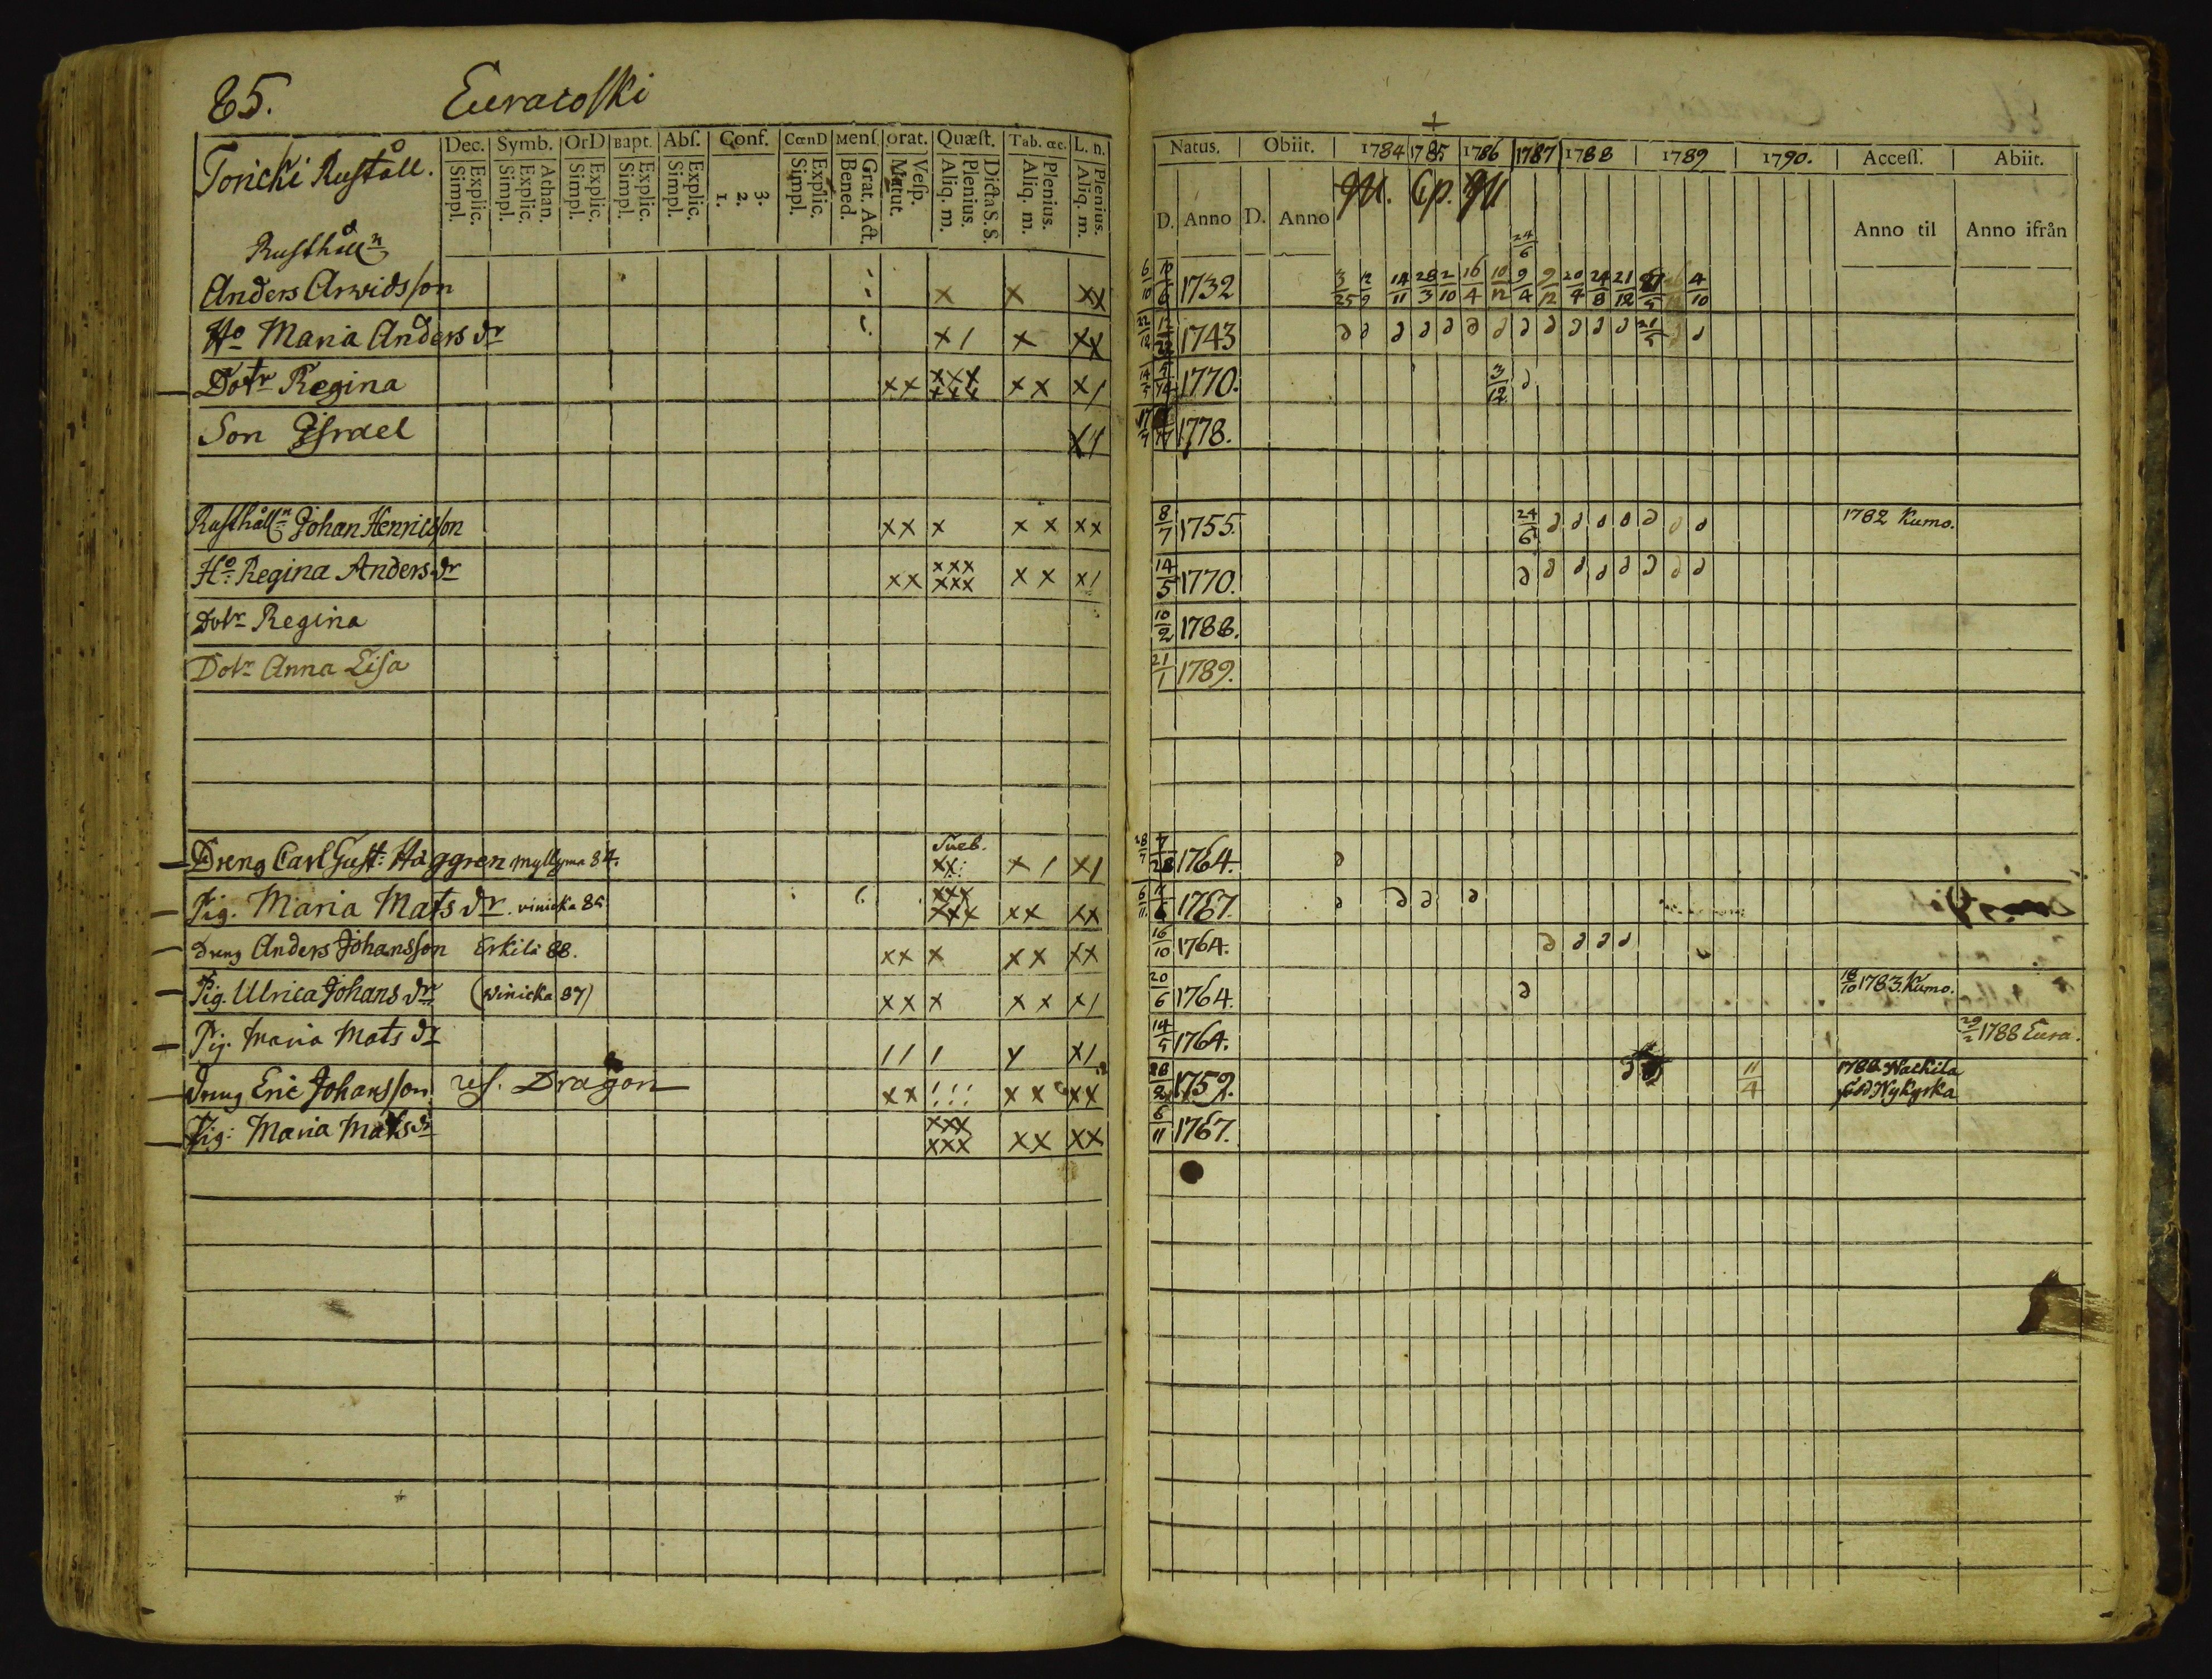 85. Euracoski
Dec. Symb. OrD Bapt. Abſ. Conf. CœnD Menſ. Orat. Quæſt. Tab. œc. L. n.
Explic. Simpl. Athan. Explic. Simpl. Explic. Simpl. Explic. Simpl. Explic. Simpl. 3. 2. 1. Explic. Simpl. Grat. Act. Bened. Veſp. Matut. Dicta S. S. Plenius. Aliq. m. Plenius. Aliq. m. Plenius. Aliq. m.
Toricki Ruståll.
Rusthålln
Anders Arvidsson x x xx
Ho Maria Anders dr x / x xx
Dotr Regina xx xxx xxx xx x/
Son Israel
Rusthålln Johan Henricsson xx x xx xx
Ho Regina Anders dr xx xxx xxx xx x/
Dotr Regina
Dotr Anna Lisa
Dreng Carl Gust: Häggren myllyma 84. x / x/
Pig. Maria Mats dr. vinicka 86 xxx xxx xx xx
Dreng Anders Johansson Erkilä 88. xx x xx xx
Pig. Ulrica Johans dr (Winicka 87) xx x xx x/
Pig. Maria Mats dr // / x/
Dreng Eric Johansson res. Dragon xx !!! xx xx
Pig: Maria Mats dr xxx xxx xx xx
Natus. Obiit. 1784 1785 1786 1787 1788 1789 1790. Acceſſ. Abiit.
D. Anno D. Anno Anno til Anno ifrån
24/6
6/10 1732 3/25 12/9 14/11 28/3 2/10 16/4 10/12 9/4 9/12 20/4 24/8 21/12 4/10
1743 21/5
1770. 3/12
1778.
8/7 1755. 24/6 1782 Kumo.
14/5 1770.
10/2 1788.
21/1 1789.
28/7 7/28 1764.
6/11 11/6 1767.
16/10 1764.
20/6 1764. 18/10 1783. Kumo.
14/5 1764. 29/2 1788 Eura.
28/2 1759. 11/4 1788 Nackila
föd Nykyrka
6/11 1767.